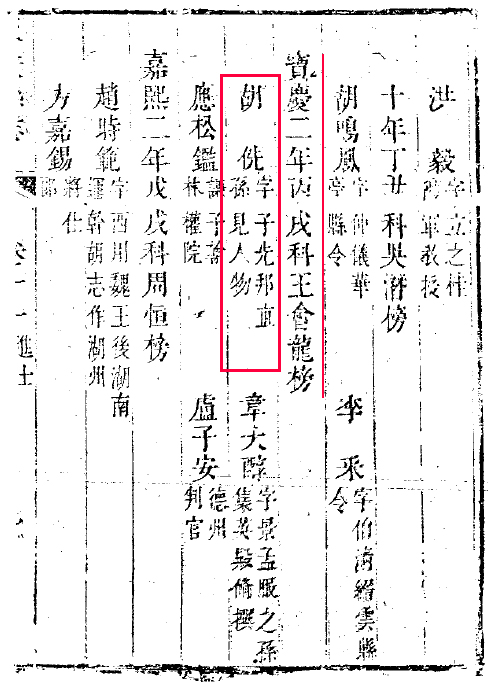 洪毅 字立之桂陽軍教授
十年丁丑科吳潛榜
胡鳴鳳 字仲儀華亭縣令 李釆 字伯清縉雲縣令
寶慶二年丙戌科王會龍榜
胡侁 字子先邦直孫見人物 章大醇 字景孟服之孫集英殿脩撰
應松鑑 謙子翰林權院 盧子安 德州判官
嘉熙二年戊戌科周恒榜
趙時範 字西用魏王後湖南運幹胡志作湖州
方嘉錫 將仕郎
卷十一 進士